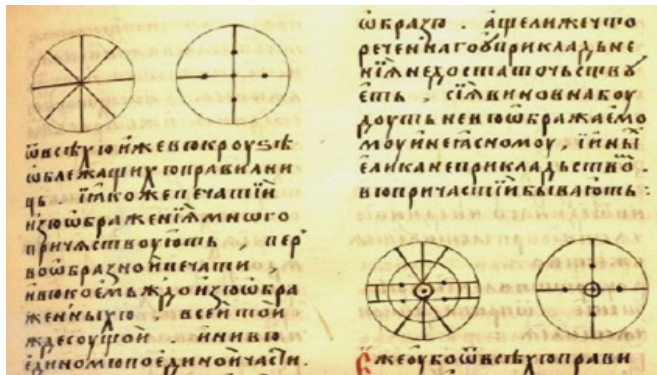 ѿвсѣхъ ӥжевъкроуѕѣ
ѡблежащихъ правилни
ць ӥкоже печатїй
изъѡбраженїѧ мнѡго
причѧствоуютъ пер
воѡбразной печати,
ивъкоемъждо изъѡбра
женныхъ, всей той
ждесоущой инивъ
единомъпоединой части.
ѡбразъ. ащелижечто
реченнагоуприкладьне
нїѧнедостаточьствꙋ
етъ, сїѧвиновнабоу
доутьневъѡбражаемо
моуинеꙗсномоу, ӥны
еликанеприкладьство.
въпричастїйбываютъ:
Ежеоубоѿвсѣхъправи